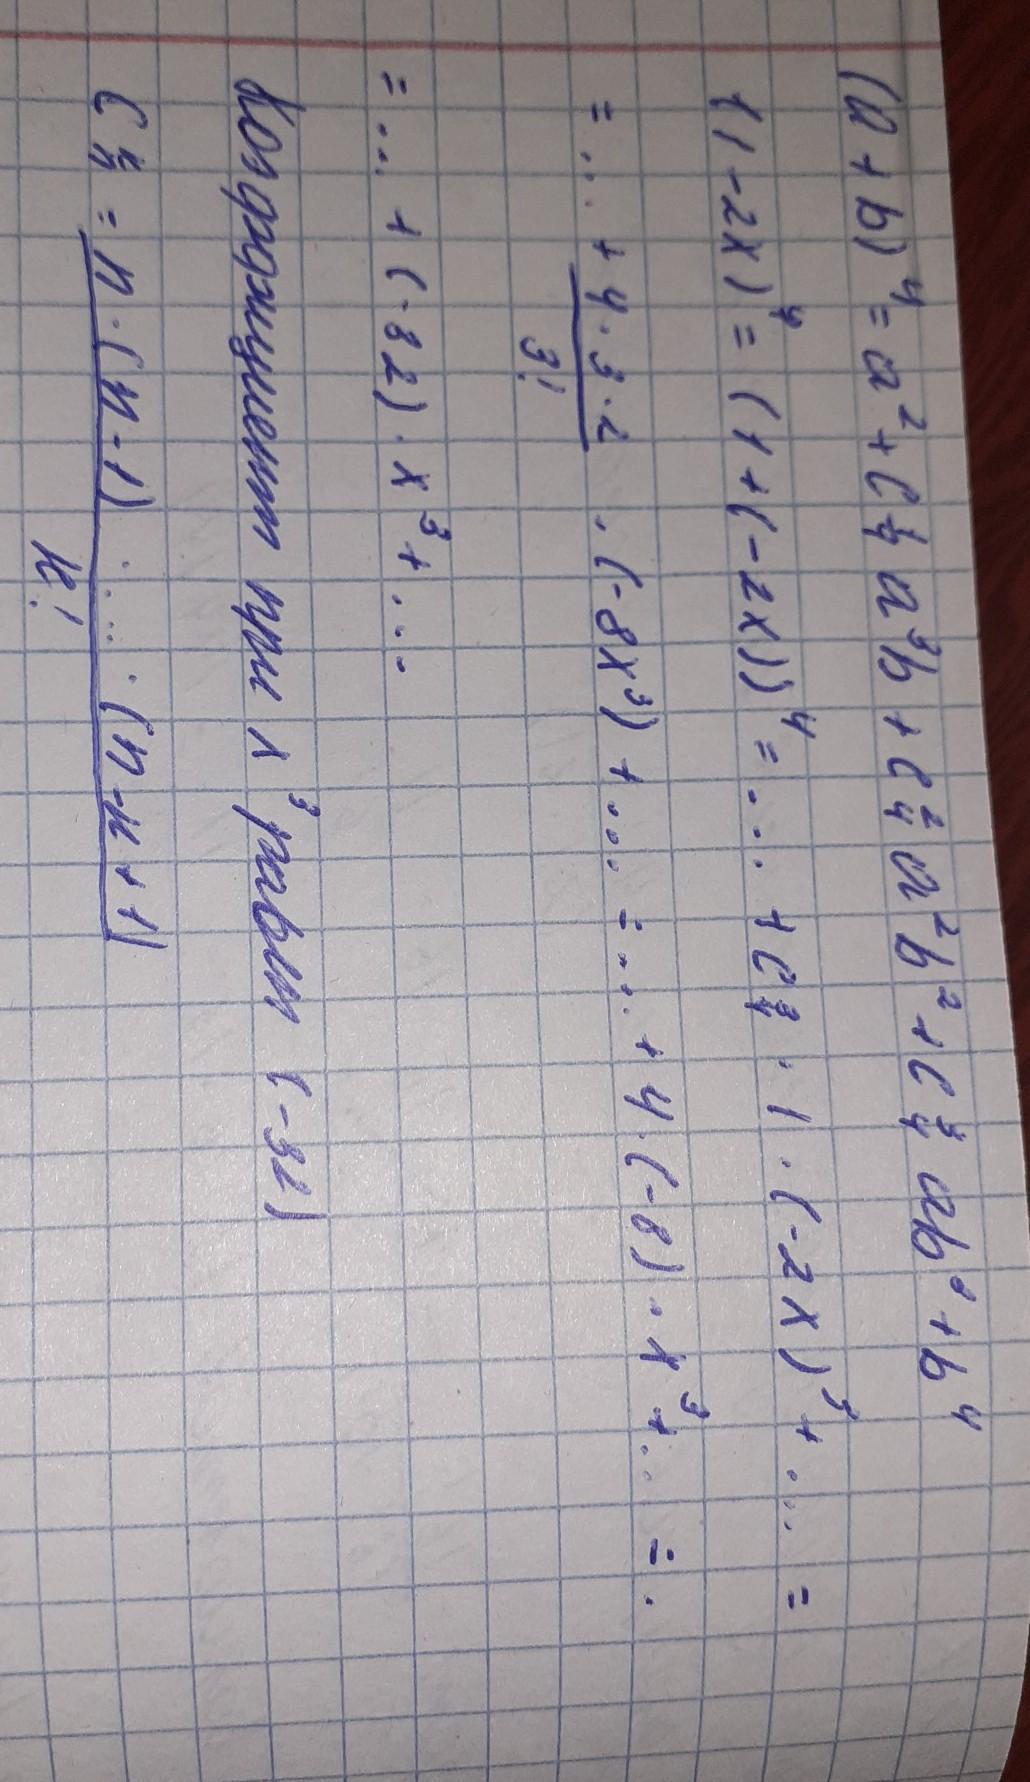 (a+b)⁴ = a² + C¹₄ a³b + C²₄ a²b² + C³₄ ab³ + b⁴
(1-2x)⁴ = (1+(-2x))⁴ = ... + C³₄ · 1 · (-2x)³ + ... =
= ... + (4·3·2)/3! · (-8x³) + ... = ... + 4·(-8)·x³ + .. = .
= ... + (-32) · x³ + ...
Коэффициент при x³ равен (-32)
Cᵏₙ = (n·(n-1) ... · (n-k+1))/k!